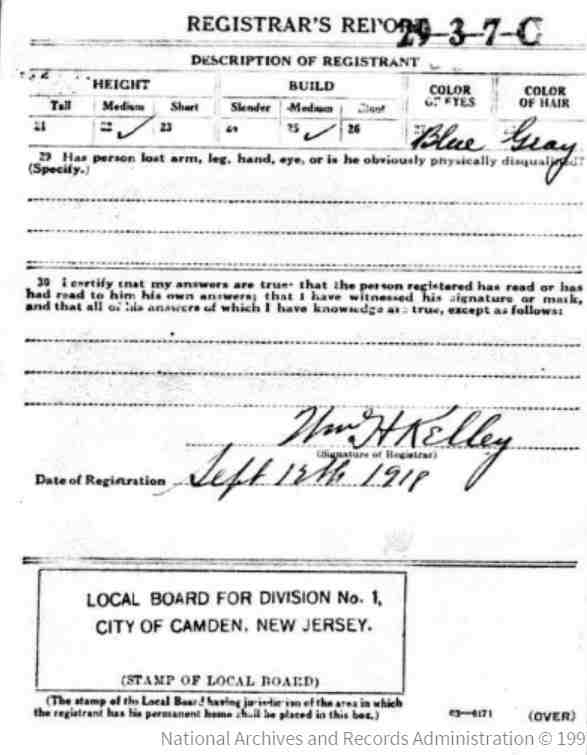 REGISTRAR'S REPORT 29-3-7-C
DESCRIPTION OF REGISTRANT
HEIGHT BUILD COLOR OF EYES COLOR OF HAIR
Tall Medium Short Slender Medium Stout
21 22 ✓ 23 24 25 ✓ 26 27 Blue Gray
29 Has person lost arm, leg, hand, eye, or is he obviously physically disqualified?
(Specify.)
30 I certify that my answers are true; that the person registered has read or has
had read to him his own answers; that I have witnessed his signature or mark,
and that all of his answers of which I have knowledge are true, except as follows:
Wm H Kelley
(Signature of Registrar)
Date of Registration Sept 12th 1918
LOCAL BOARD FOR DIVISION No. 1,
CITY OF CAMDEN, NEW JERSEY.
(STAMP OF LOCAL BOARD)
(The stamp of the Local Board having jurisdiction of the area in which
the registrant has his permanent home shall be placed in this box.)
03—6171 (OVER)
National Archives and Records Administration © 199